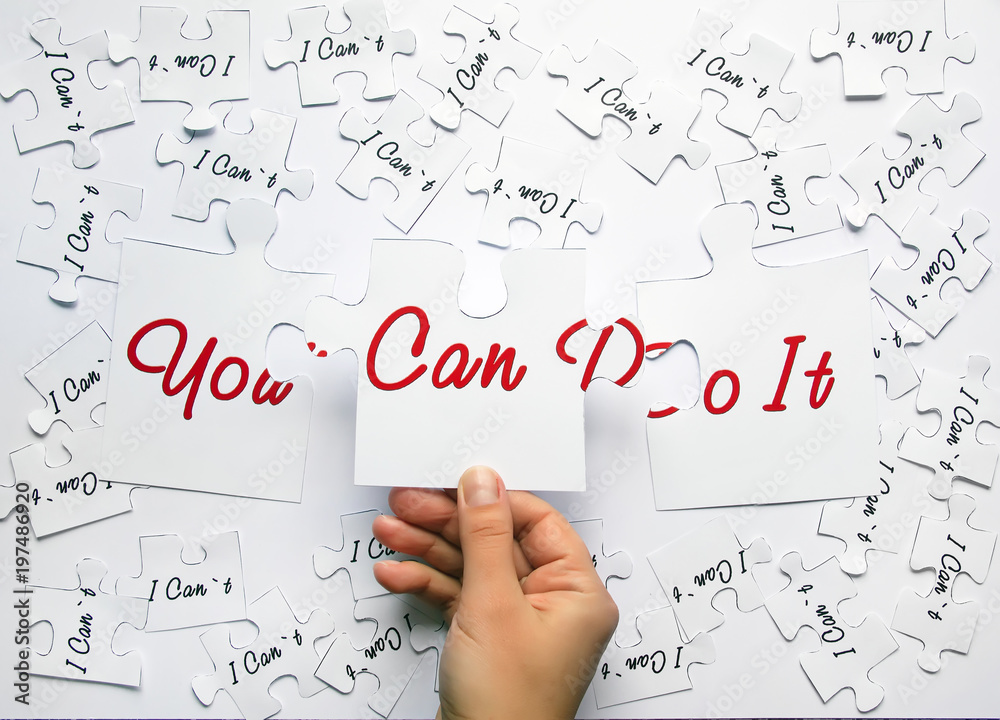 I Can`t
I Can`t
I Can`t
I Can`t
I Can`t
I Can`t
I Can`t
I Can`t
I Can`t
I Can`t
I Can`t
I Can`t
I Can`t
I Can`t
You Can Do It
Can`t
I Can`t
Can`t
I Can`t
I Can`t
I Can`t
I Can
I Can`t
I Can`t
I Can`t
I Can`t
I Can`t
I Can`t
I Can`t
I Can`t
Adobe Stock | #197486920